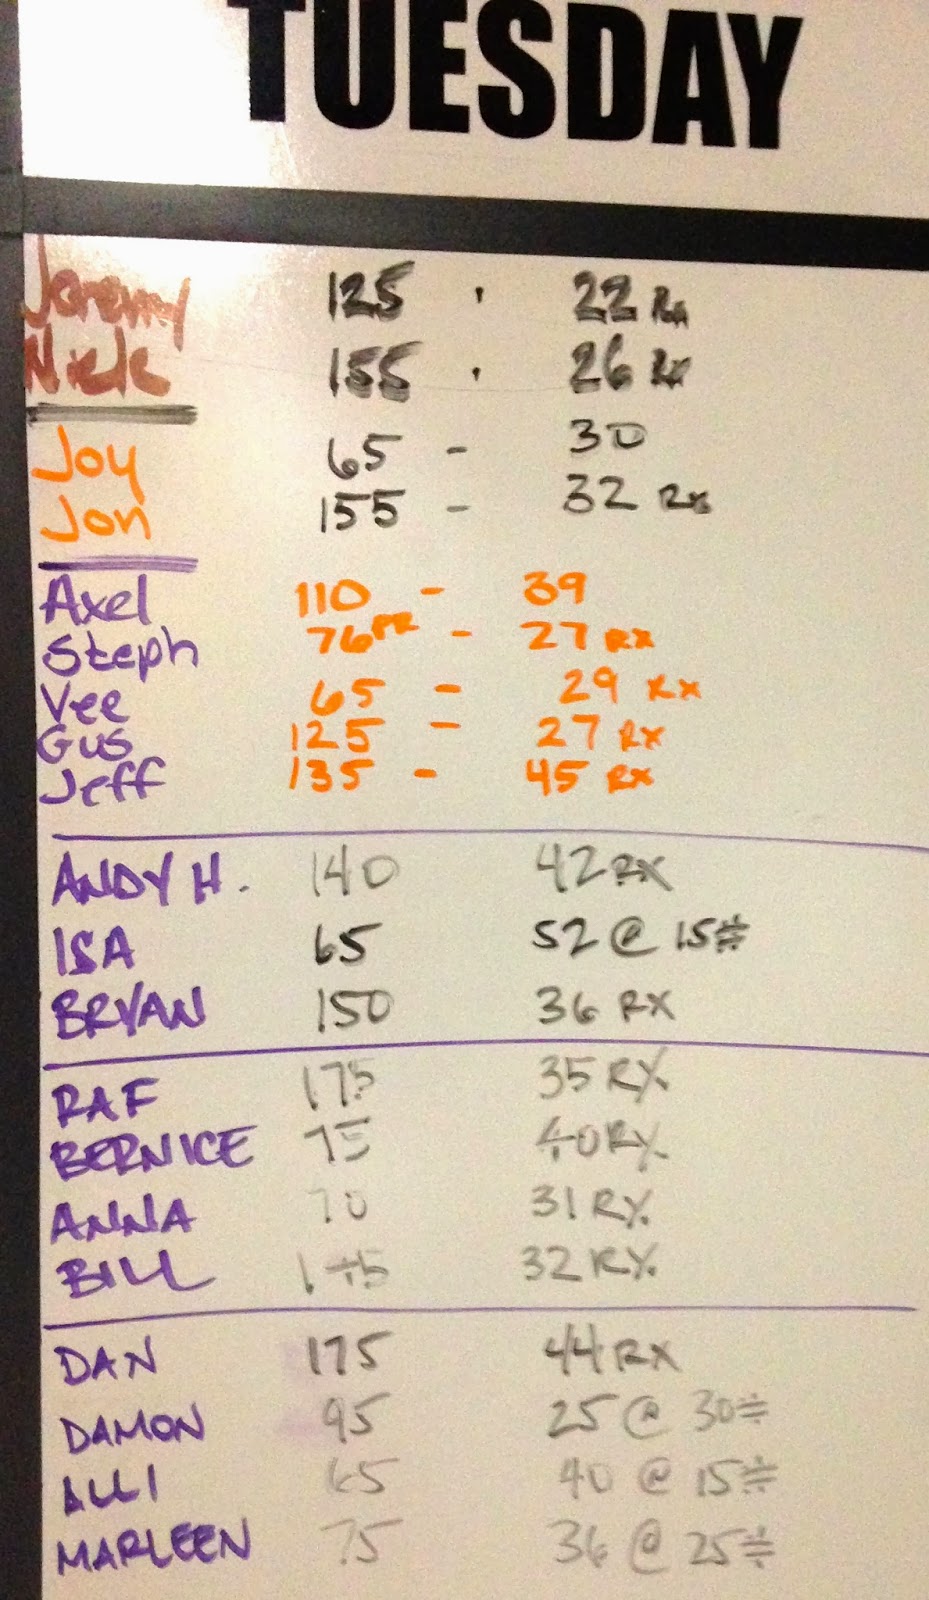 TUESDAY
Jeremy 125 · 22 Rx
Nick 155 · 26 Rx
Joy 65 - 30
Jon 155 - 32 Rx
Axel 110 - 39
Steph 76 PR - 27 RX
Vee 65 - 29 RX
Gus 125 - 27 RX
Jeff 135 - 45 RX
ANDY H. 140 42 RX
ISA 65 52 @ 15#
BRYAN 150 36 RX
RAF 175 35 RX
BERNICE 75 40 RX
ANNA 70 31 RX
BILL 32 RX
DAN 175 44 RX
DAMON 95 25 @ 30#
ALLI 65 40 @ 15#
MARLEEN 75 36 @ 25#